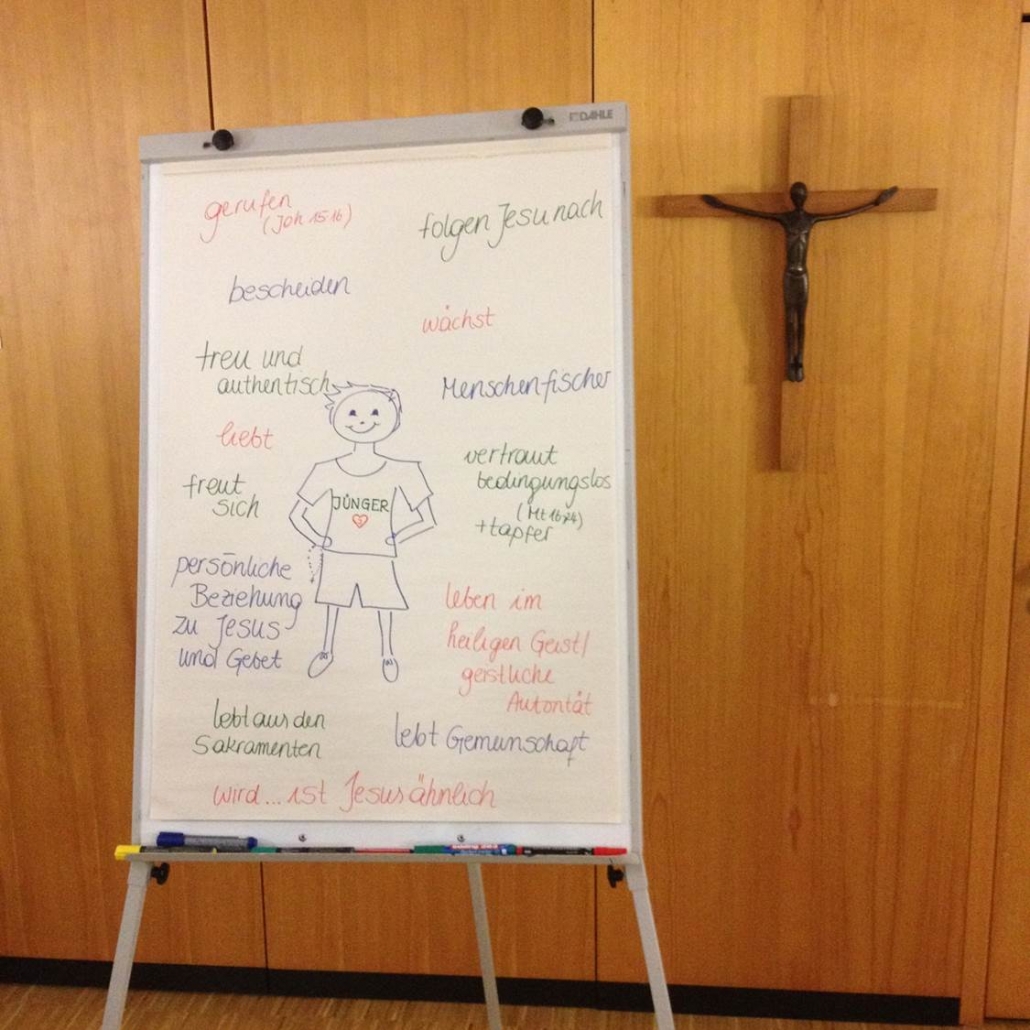 DAHLE
gerufen
(Joh 15 16)
folgen Jesu nach
bescheiden
wächst
treu und
authentisch
Menschenfischer
liebt
vertraut
bedingungslos
(Mt 16 24)
+ tapfer
freut
sich
JÜNGER
persönliche
Beziehung
zu Jesus
und Gebet
leben im
heiligen Geist/
geistliche
Autorität
lebt aus den
Sakramenten
lebt Gemeinschaft
wird... ist Jesus ähnlich